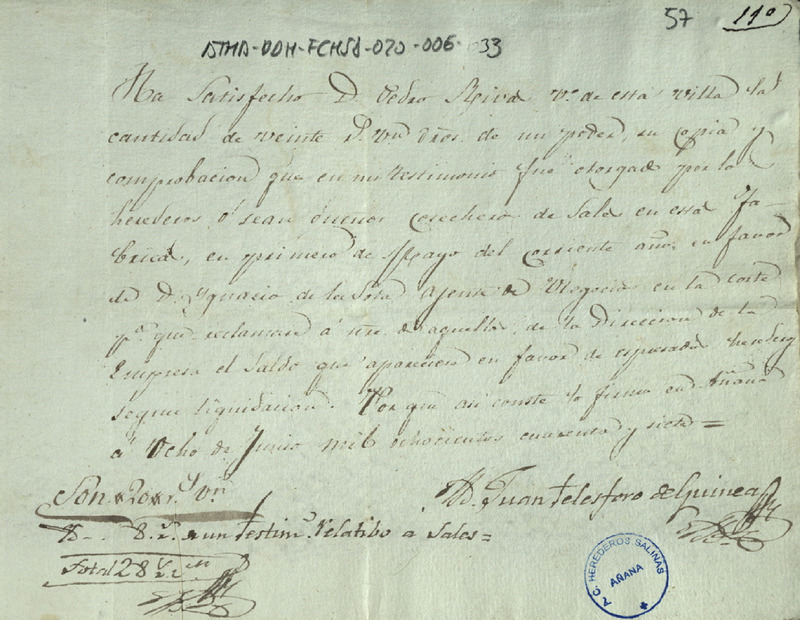 57 110
ATHA-DDH-FCHSA-020-006-033
Ha Satisfecho D. Pedro Riva Vº. de esta villa la
cantidad de veinte Rs. Vn dros. de un poder, su copia y
comprobacion que en mi testimonio fue otorgado por los
herederos ó sean dueños Cosecheros de Sales en esta Fa-
brica, en primero de Mayo del corriente año, en favor
de D. Ygnacio de la Sota Agente de Negocios en la corte
pª. que reclamase á nre. de aquellos, de la Direccion de la
Empresa el Saldo que apareciere en favor de espresados hereders
segun liquidacion. Y por que asi conste lo firmo en Añana
á Ocho de Junio mil ochocientos cuarenta y siete =
Son 20 rs. Vn
D. Juan Telesforo de Guinea
8 rs. un testimº. relatibo á Sales =
Total 28 rs. vn
A.C. HEREDEROS SALINAS
AÑANA